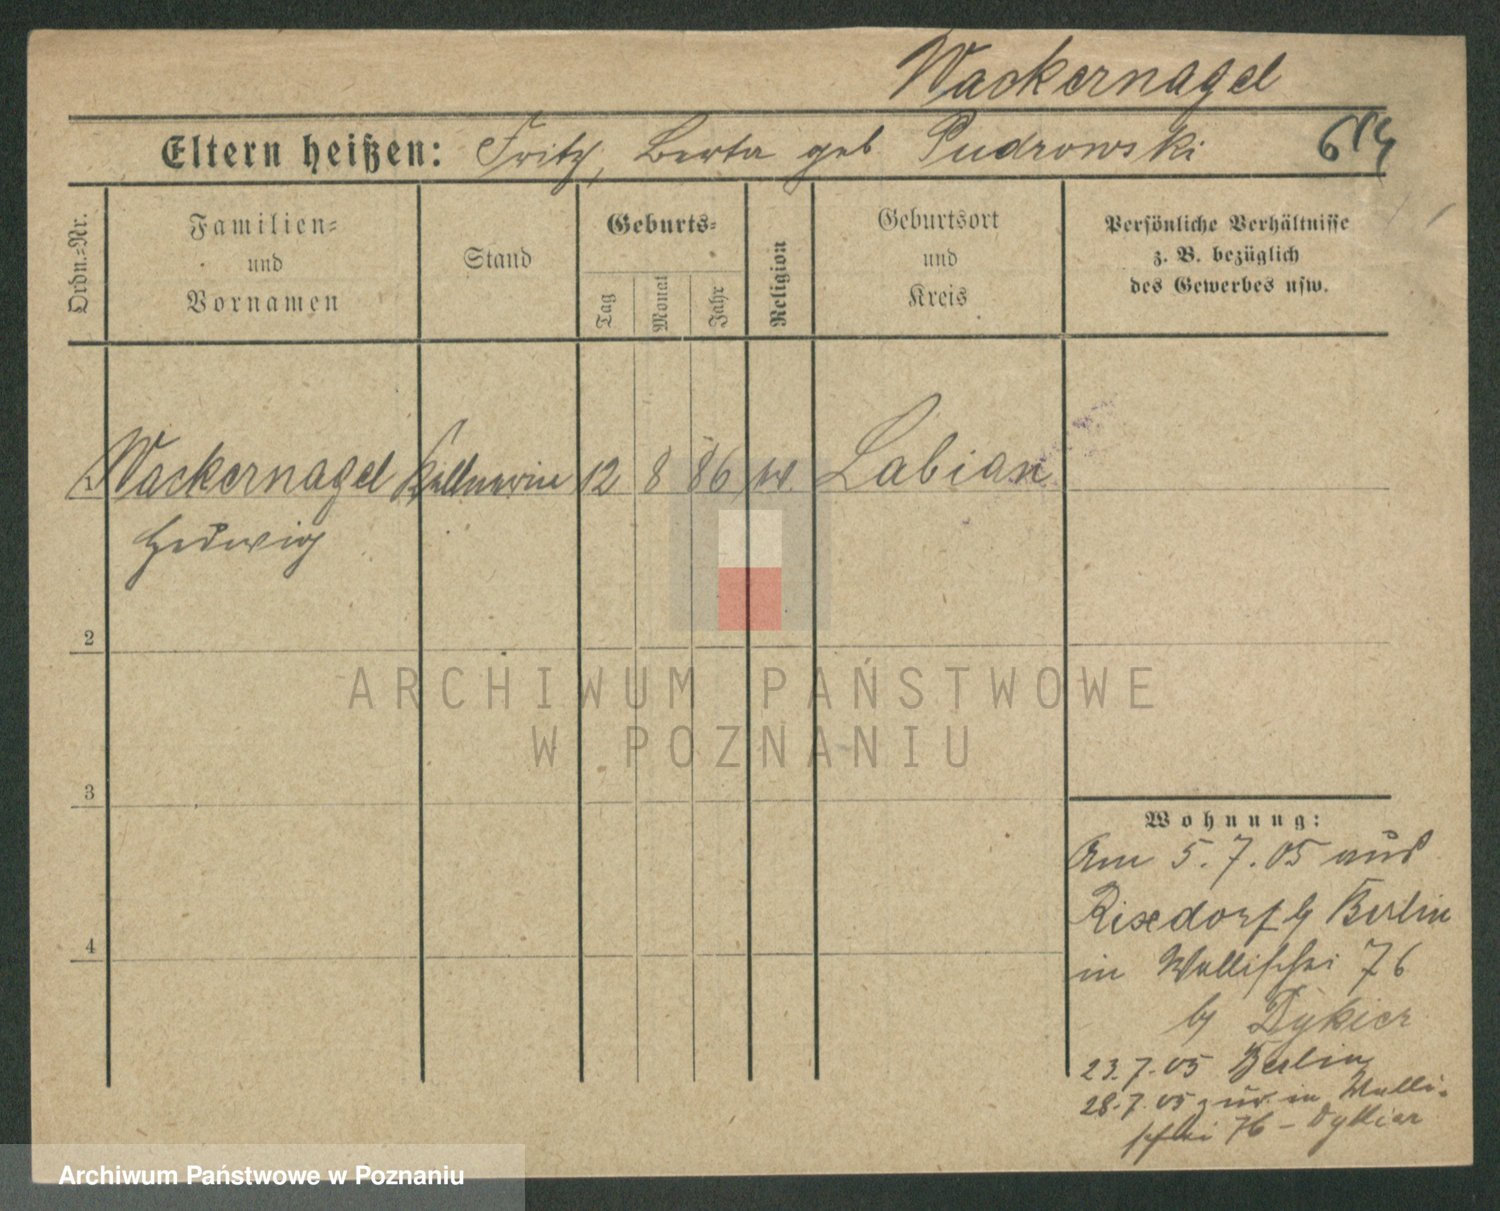 Wackernagel
Eltern heißen: Fritz, Berta geb Pudrowski
Ordn.=Nr.
Familien=
und
Vornamen
Stand
Geburts=
Tag
Monat
Jahr
Religion
Geburtsort
und
Kreis
Persönliche Verhältnisse
z. B. bezüglich
des Gewerbes usw.
1 Wackernagel Kellnerin 12 8 86 Labian
Hedwig
2
3
4
Wohnung:
Am 5.7.05 aus
Rixdorf b/ Berlin
in Wallischei 76
b/ Dykier
23.7.05 Berlin
28.7.05 zur. in Walli-
schei 76 - Dykier
ARCHIWUM PAŃSTWOWE
W POZNANIU
Archiwum Państwowe w Poznaniu